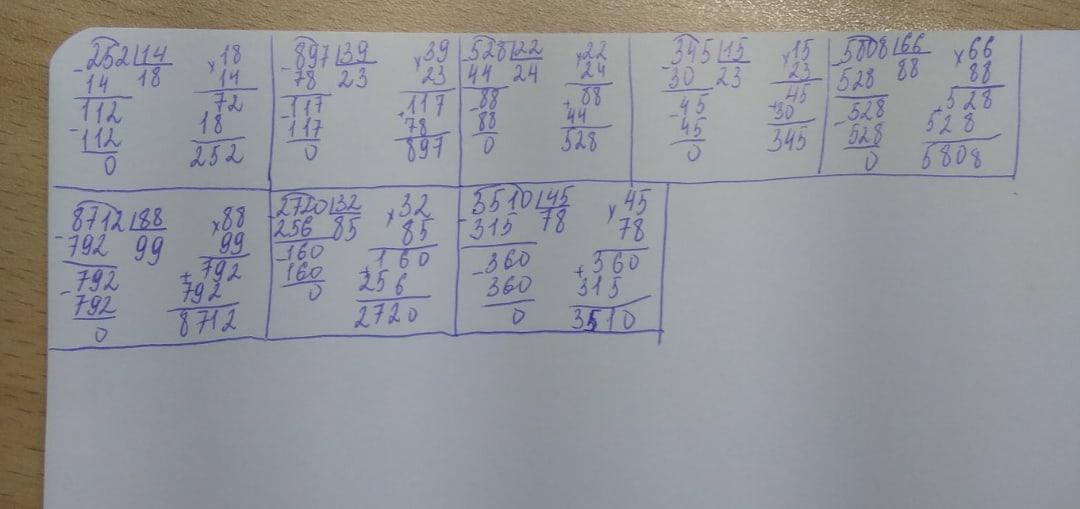 -252 14 ×18 -897 39 ×39 528 22 ×22 345 15 ×15 5808 66 ×66
14 18 14 78 23 23 44 24 24 30 23 23 528 88 88
112 72 -117 +117 -88 +88 -45 +45 -528 +528
-112 18 117 78 88 44 45 30 528 528
0 252 0 897 0 528 0 345 0 5808
-8712 88 ×88 -2720 32 ×32 -3510 45 ×45
792 99 99 256 85 85 315 78 78
-792 +792 -160 +160 -360 +360
792 792 160 256 360 315
0 8712 0 2720 0 3510